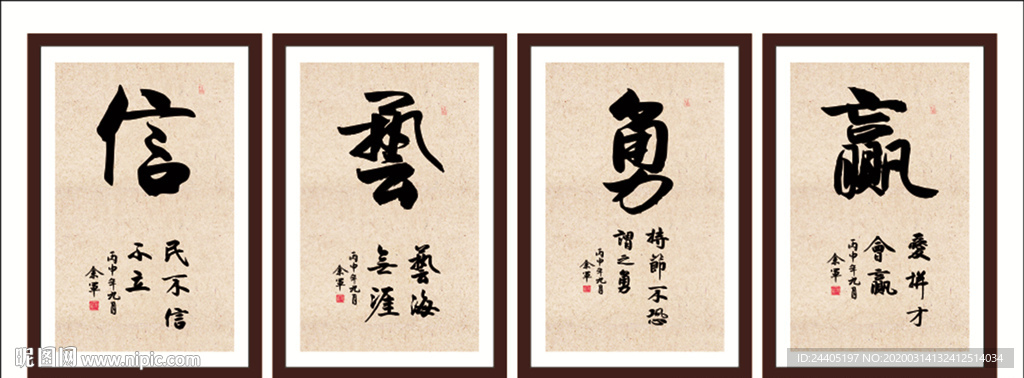 信
民不信
不立
丙申年九月
余軍
藝
藝海
無涯
丙申年九月
余軍
勇
持節不恐
謂之勇
丙申年九月
余軍
贏
愛拼才
會贏
丙申年九月
余軍
昵图网 www.nipic.com
ID:24405197 NO:20200314132412514034